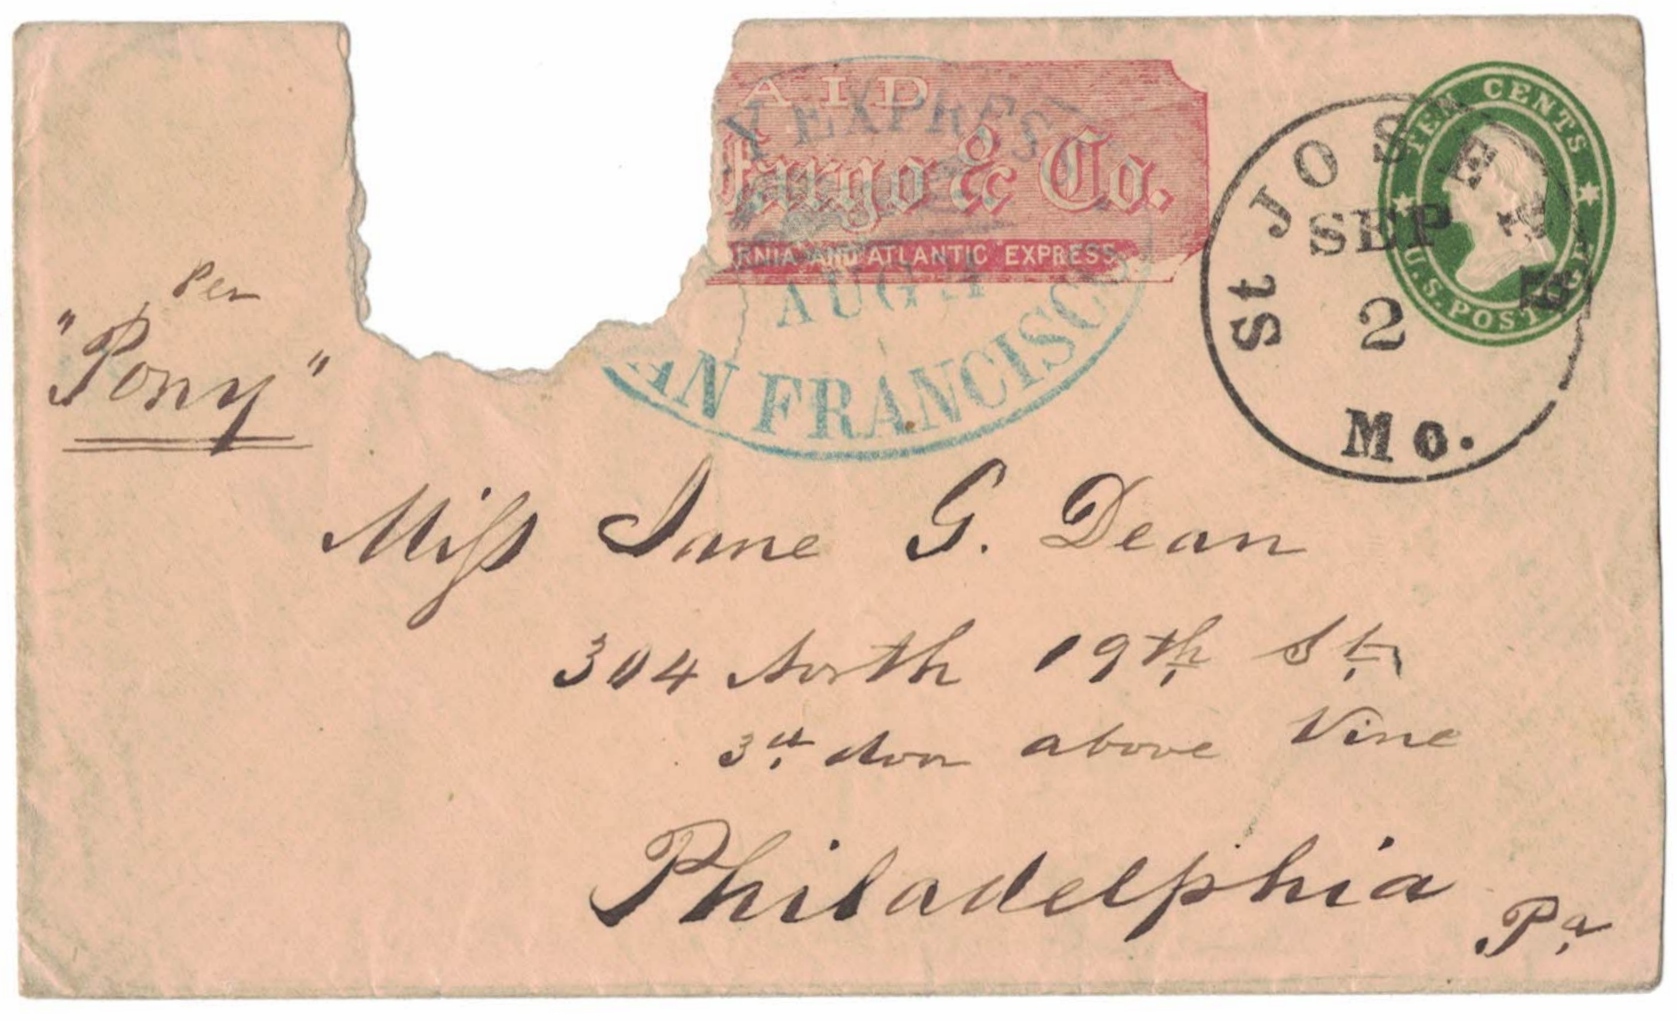 AID
Y EXPRESS
Fargo & Co.
RNIA AND ATLANTIC EXPRESS
AUG
AN FRANCISCO
TEN CENTS
U.S. POSTAGE
St JOSEPH
SEP
2
Mo.
Per
"Pony"
Miss Jane G. Dean
304 North 19th St.
3d door above Vine
Philadelphia
Pa